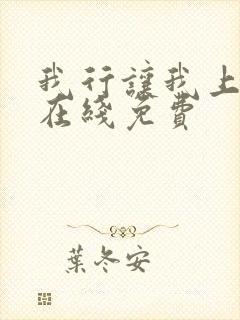 我行讓我上
在綫免費
葉冬安